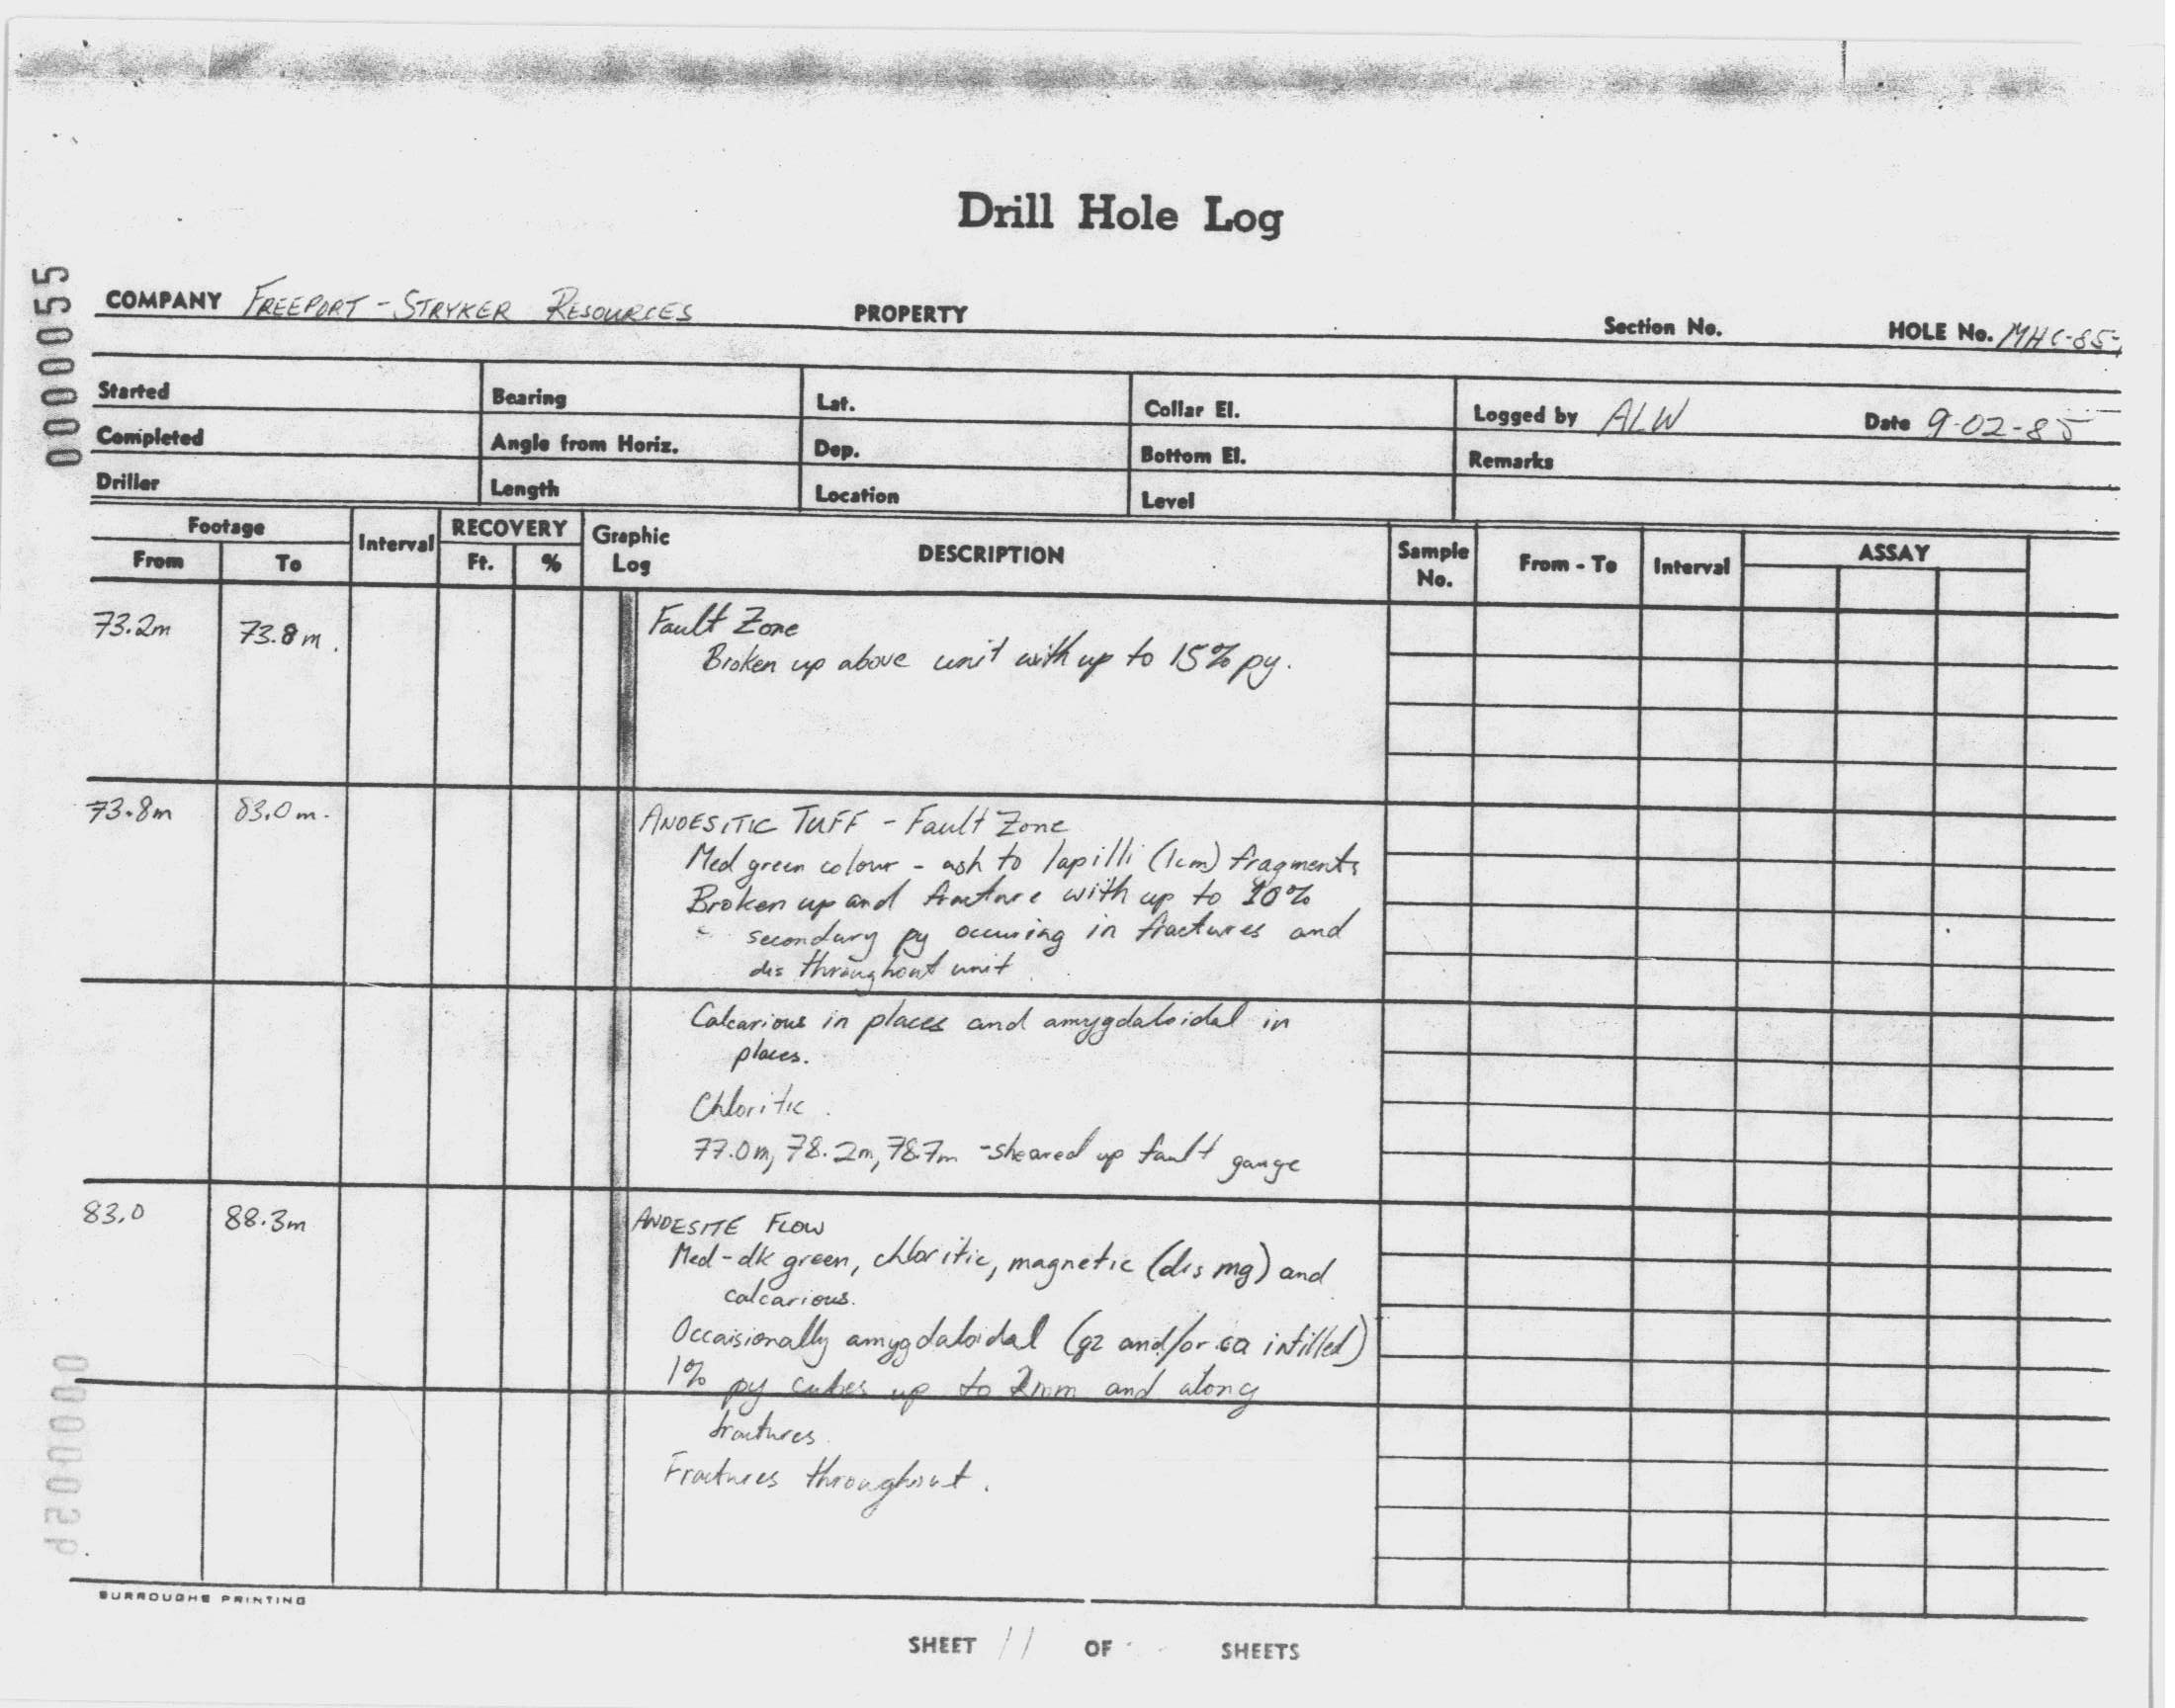 Drill Hole Log
000055
COMPANY FREEPORT - STRYKER RESOURCES PROPERTY Section No. HOLE No. MHC-85-
Started Bearing Lat. Collar El. Logged by ALW Date 9-02-85
Completed Angle from Horiz. Dep. Bottom El. Remarks
Driller Length Location Level
Footage Interval RECOVERY Graphic Log DESCRIPTION Sample No. From - To Interval ASSAY
From To Ft. %
73.2m 73.8m. Fault Zone
Broken up above unit with up to 15% py.
73.8m 83.0m. ANDESITIC TUFF - Fault Zone
Med green colour - ash to lapilli (1cm) fragments
Broken up and fracture with up to 10%
secondary py occuring in fractures and
dis throughout unit
Calcarious in places and amygdaloidal in
places.
Chloritic.
77.0m, 78.2m, 78.7m - sheared up fault gauge
83.0 88.3m ANDESITE FLOW
Med-dk green, chloritic, magnetic (dis mg) and
calcarious.
Occaisionally amygdaloidal (qz and/or ca infilled)
1% py cubes up to 2mm and along
fractures
Fractures throughout.
BURROUGHS PRINTING
SHEET 11 OF SHEETS